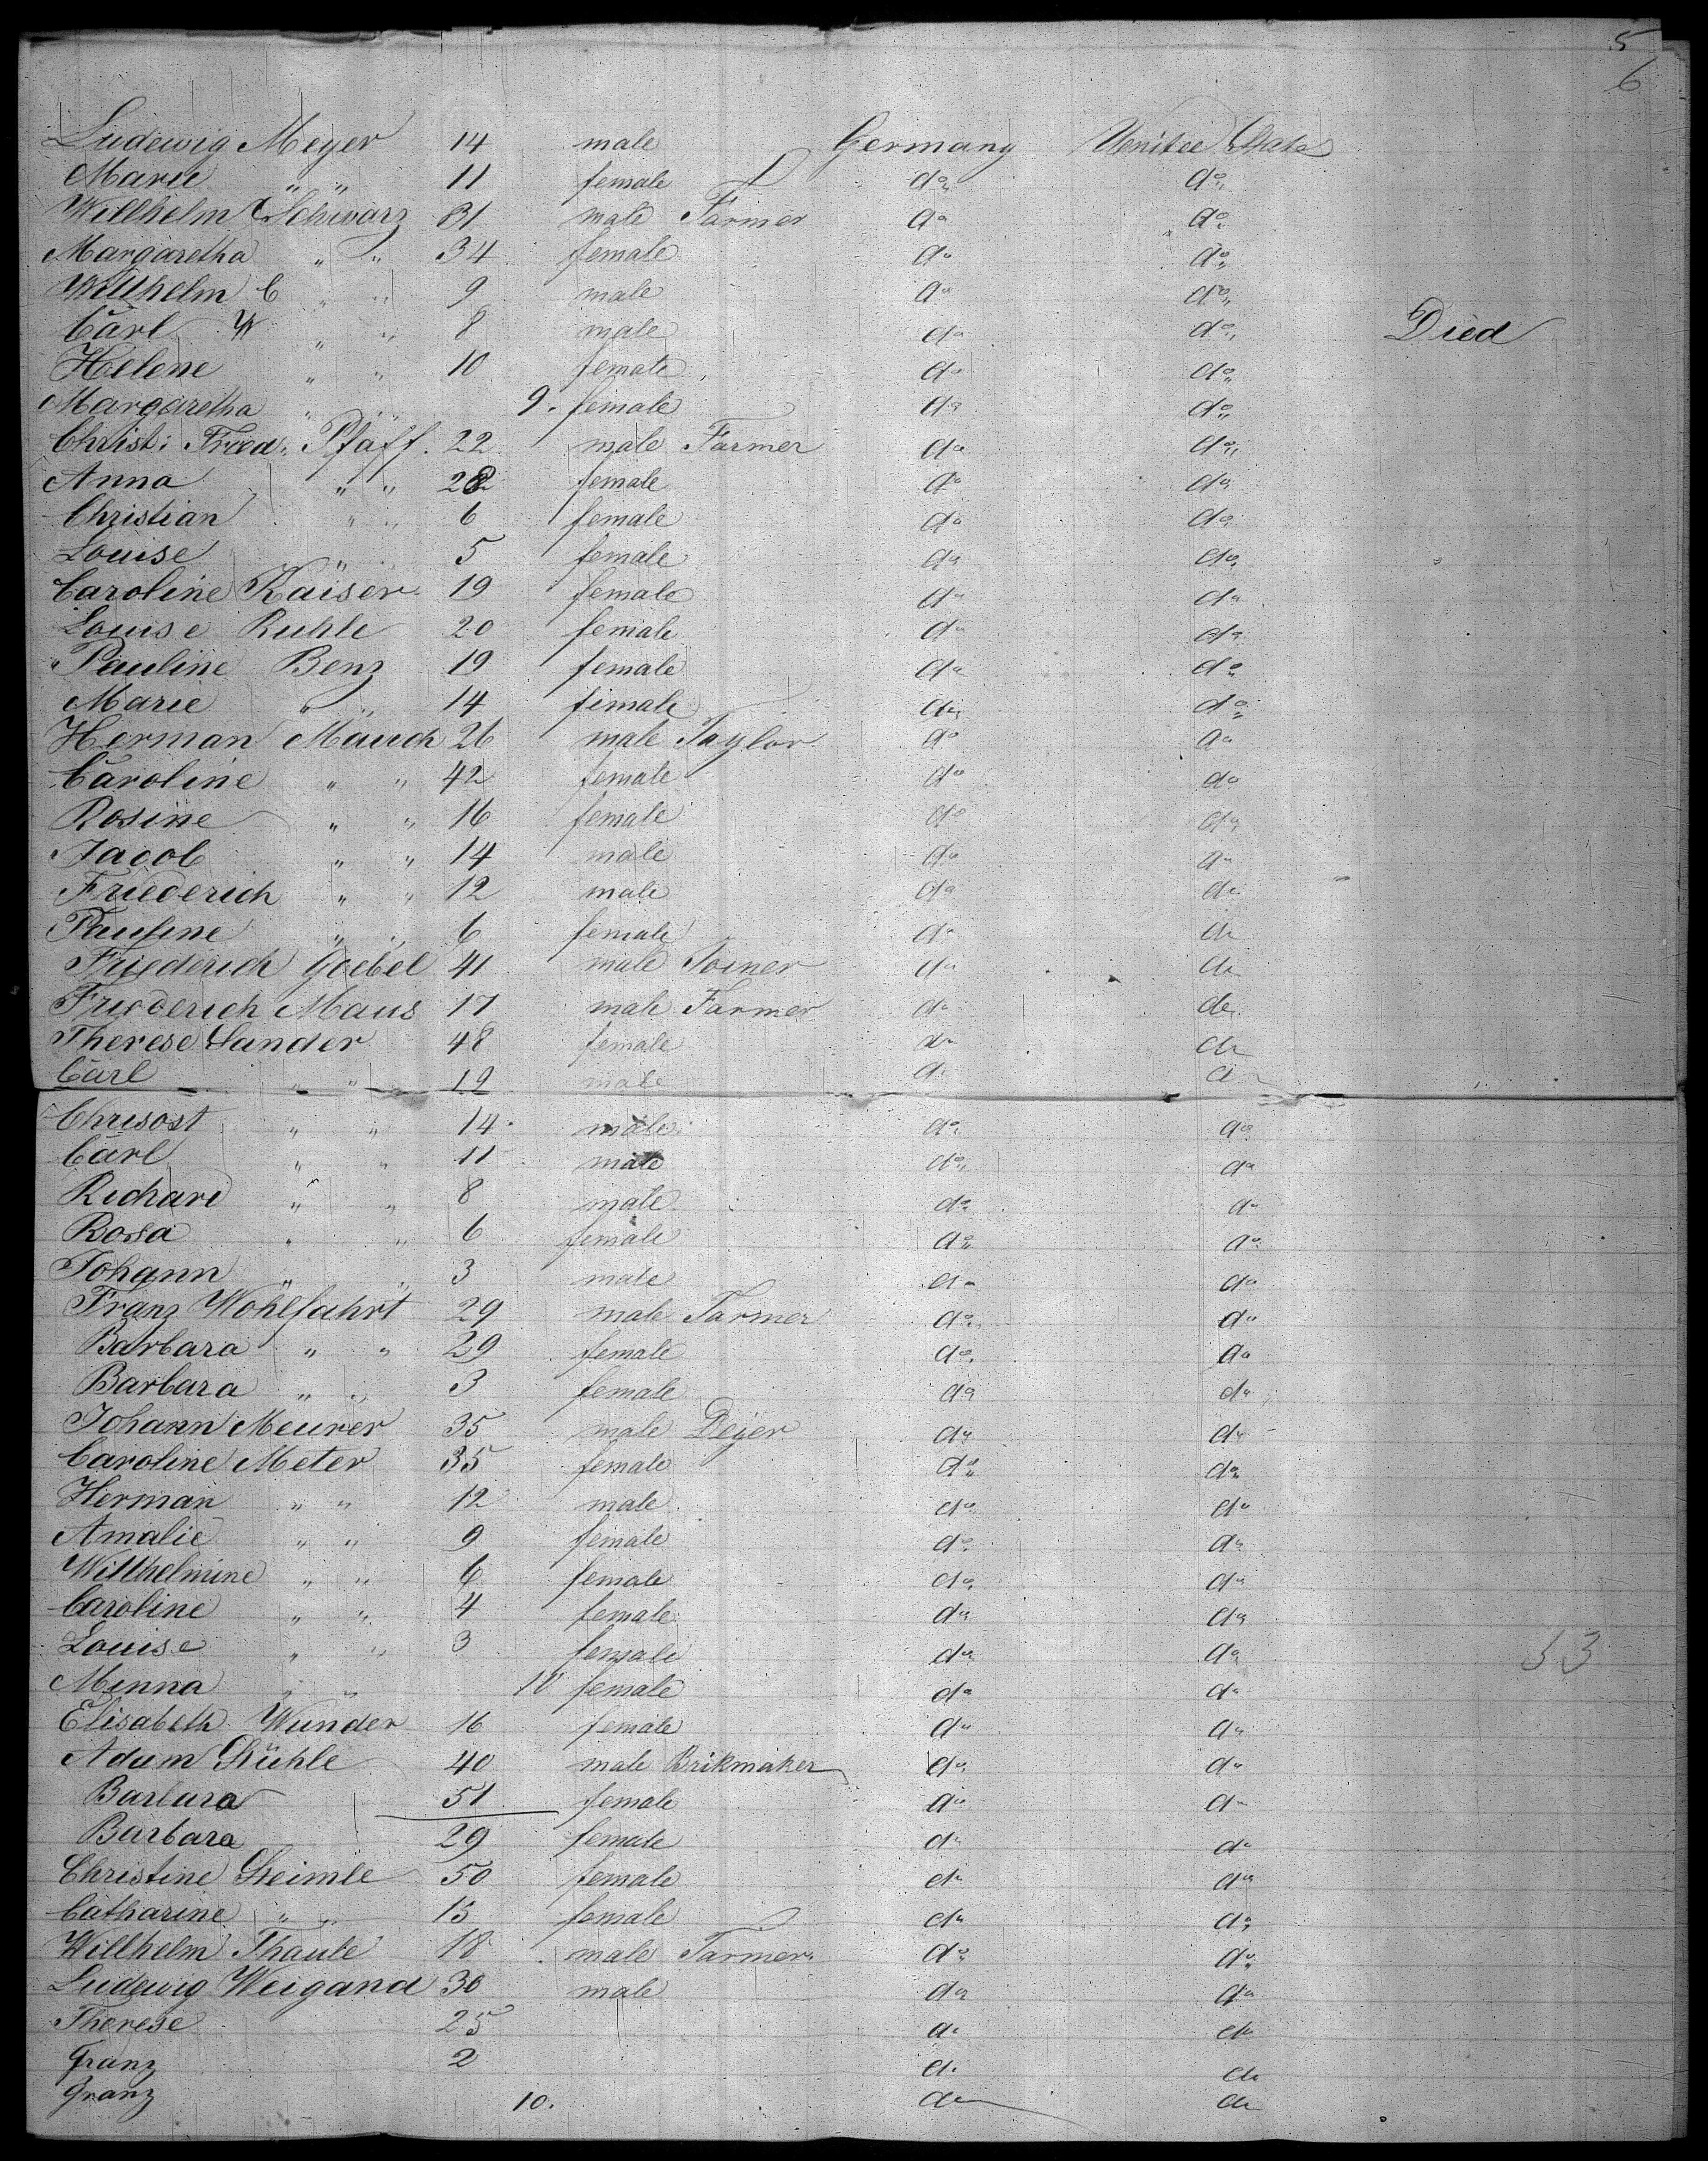 5
6
Ludewig Meyer 14 male Germany United States
Marie " " 11 female do do
Willhelm Schwarz 31 male Farmer do do
Margaretha " " 34 female do do
Willhelm C " " 9 male do do
Carl W " " 8 male do do Died
Helene " " 10 female do do
Margaretha " " 9. female do do
Christ: Fried: Pfaff. 22 male Farmer do do
Anna " " 22 female do do
Christian " " 6 female do do
Louise " 5 female do do
Caroline Kaiser 19 female do do
Louise Ruhle 20 female do do
Pauline Benz 19 female do do
Marie " " 14 female do do
Herman Mauch 26 male Taylor do do
Caroline " " 42 female do do
Rosine " " 16 female do do
Jacob " " 14 male do do
Friederich " " 12 male do do
Pauline " " 6 female do do
Friederich Goebel 41 male Joiner do do
Friederich Maus 17 male Farmer do do
Therese Sander 48 female do do
Carl " " 19 male do do
Chrisost " " 14 male do do
Carl " " 11 male do do
Richard " " 8 male do do
Rosa " " 6 female do do
Johann " " 3 male do do
Franz Wohlfahrt 29 male Farmer do do
Barbara " " 29 female do do
Barbara " " 3 female do do
Johann Meurer 35 male Deyer do do
Caroline Meter 35 female do do
Herman " " 12 male do do
Amalie " " 9 female do do
Willhelmine " " 6 female do do
Caroline " " 4 female do do
Louise " " 3 female do do 53
Minna " " 10 female do do
Elisabeth Wunder 16 female do do
Adam Stühle 40 male Brikmaker do do
Barbara 51 female do do
Barbara 29 female do do
Christine Steimle 50 female do do
Catharine " " 15 female do do
Willhelm Thaule 18 male Farmer do do
Ludewig Weigand 30 male do do
Therese 25 do do
Franz 2 do do
Franz 10. do do